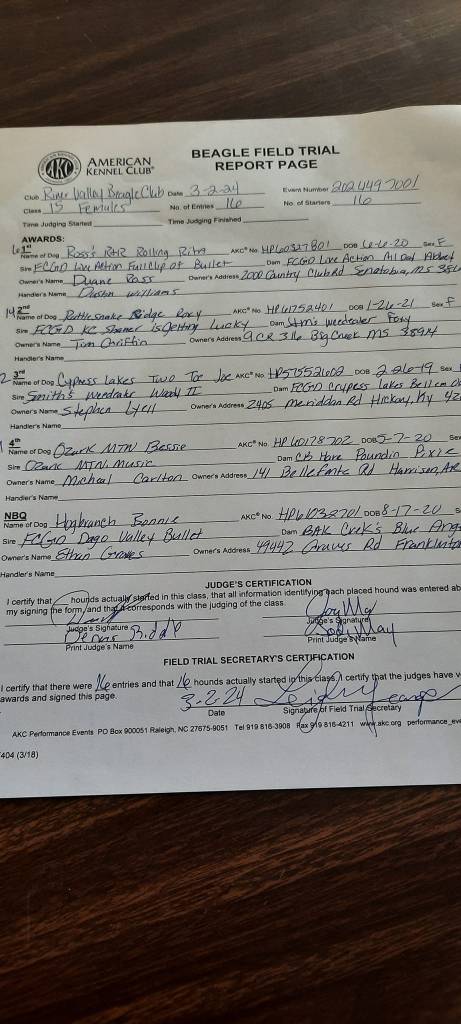 AKC
AMERICAN KENNEL CLUB®
BEAGLE FIELD TRIAL REPORT PAGE
Club River Valley Beagle Club Date 3-2-24 Event Number 2024497001
Class 15 Females No. of Entries 16 No. of Starters 16
Time Judging Started Time Judging Finished
AWARDS:
1st
Name of Dog Ross's R&R Rolling Rita AKC® No. HP60327801 DOB 6-6-20 Sex F
Sire FCGD Live Action Full Clip of Bullet Dam FCGD Live Action All Out
Owner's Name Duane Ross Owner's Address 2000 Country Club Rd Senatobia, MS
Handler's Name Dustin Williams
14 2nd
Name of Dog Rattlesnake Ridge Roxy AKC® No. HP61752401 DOB 1-26-21 Sex F
Sire FCGD KC Shaner is Getting Lucky Dam Stm's Weedeater Foxy
Owner's Name Tim Griffin Owner's Address 9 CR 316 Big Creek MS 38914
Handler's Name
2 3rd
Name of Dog Cypress Lakes Two Toe Joe AKC® No. HP57552602 DOB 2-26-19 Sex
Sire Smith's Wendrake Woody II Dam FCGD Cypress Lakes
Owner's Name Stephen Lyell Owner's Address 2405 Meriddon Rd Hickory, Ky 42
Handler's Name
4th
Name of Dog Ozark MTN Bessie AKC® No. HP60178702 DOB 5-7-20 Sex
Sire Ozark MTN. Music Dam CB Hare Poundin Pixie
Owner's Name Micheal Carlton Owner's Address 141 Bellefonte Rd Harrison, AR
Handler's Name
NBQ
Name of Dog Hogbranch Bonnie AKC® No. HP61032701 DOB 8-17-20 S
Sire FCGD Dago Valley Bullet Dam BAK Crek's Blue Ang
Owner's Name Ethan Graves Owner's Address 49442 Graves Rd Franklinton
Handler's Name
JUDGE'S CERTIFICATION
I certify that hounds actually started in this class, that all information identifying each placed hound was entered ab
my signing the form, and that it corresponds with the judging of the class.
Judge's Signature Judge's Signature
Jody May
Print Judge's Name Print Judge's Name
FIELD TRIAL SECRETARY'S CERTIFICATION
I certify that there were 16 entries and that 16 hounds actually started in this class. I certify that the judges have v
awards and signed this page.
3-2-24
Date Signature of Field Trial Secretary
AKC Performance Events PO Box 900051 Raleigh, NC 27675-9051 Tel 919 816-3908 Fax 919 816-4211 www.akc.org performance_eve
404 (3/18)